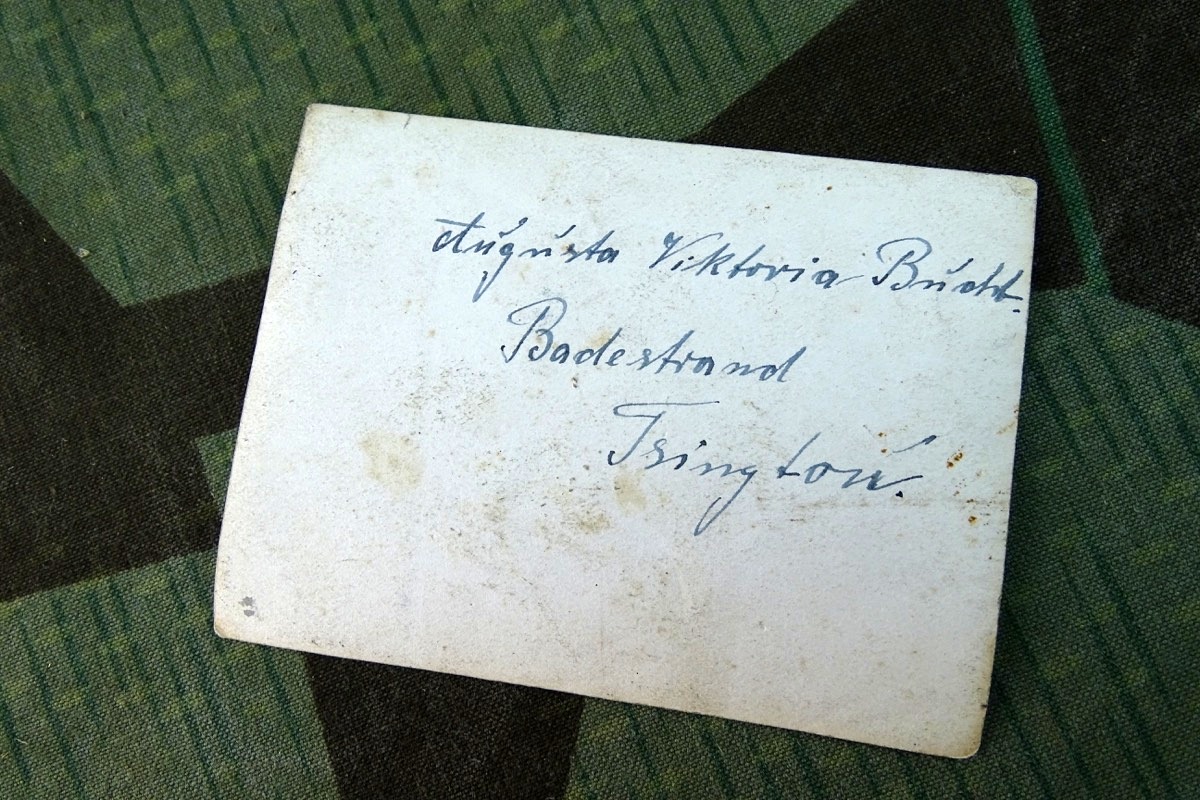 Augusta Viktoria Bucht.
Badestrand
Tsingtou.